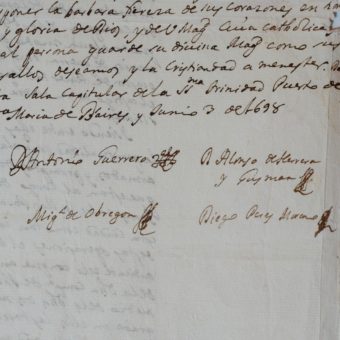 poner la barbara fiereza de sus corazones en
y gloria de Dios, y de V Magd cuia catholica
al persona guarde su divina Magd como sus
vallos deseamos y la Cristiandad a menester
Sala Capitular de la SSma Trinidad Puerto de
Maria de Buires, y Junio 3 de 1698
Dn Antonio Guerrero
D Alonso de Herrera
y Guzman
Migl de Obregon
Diego Perez